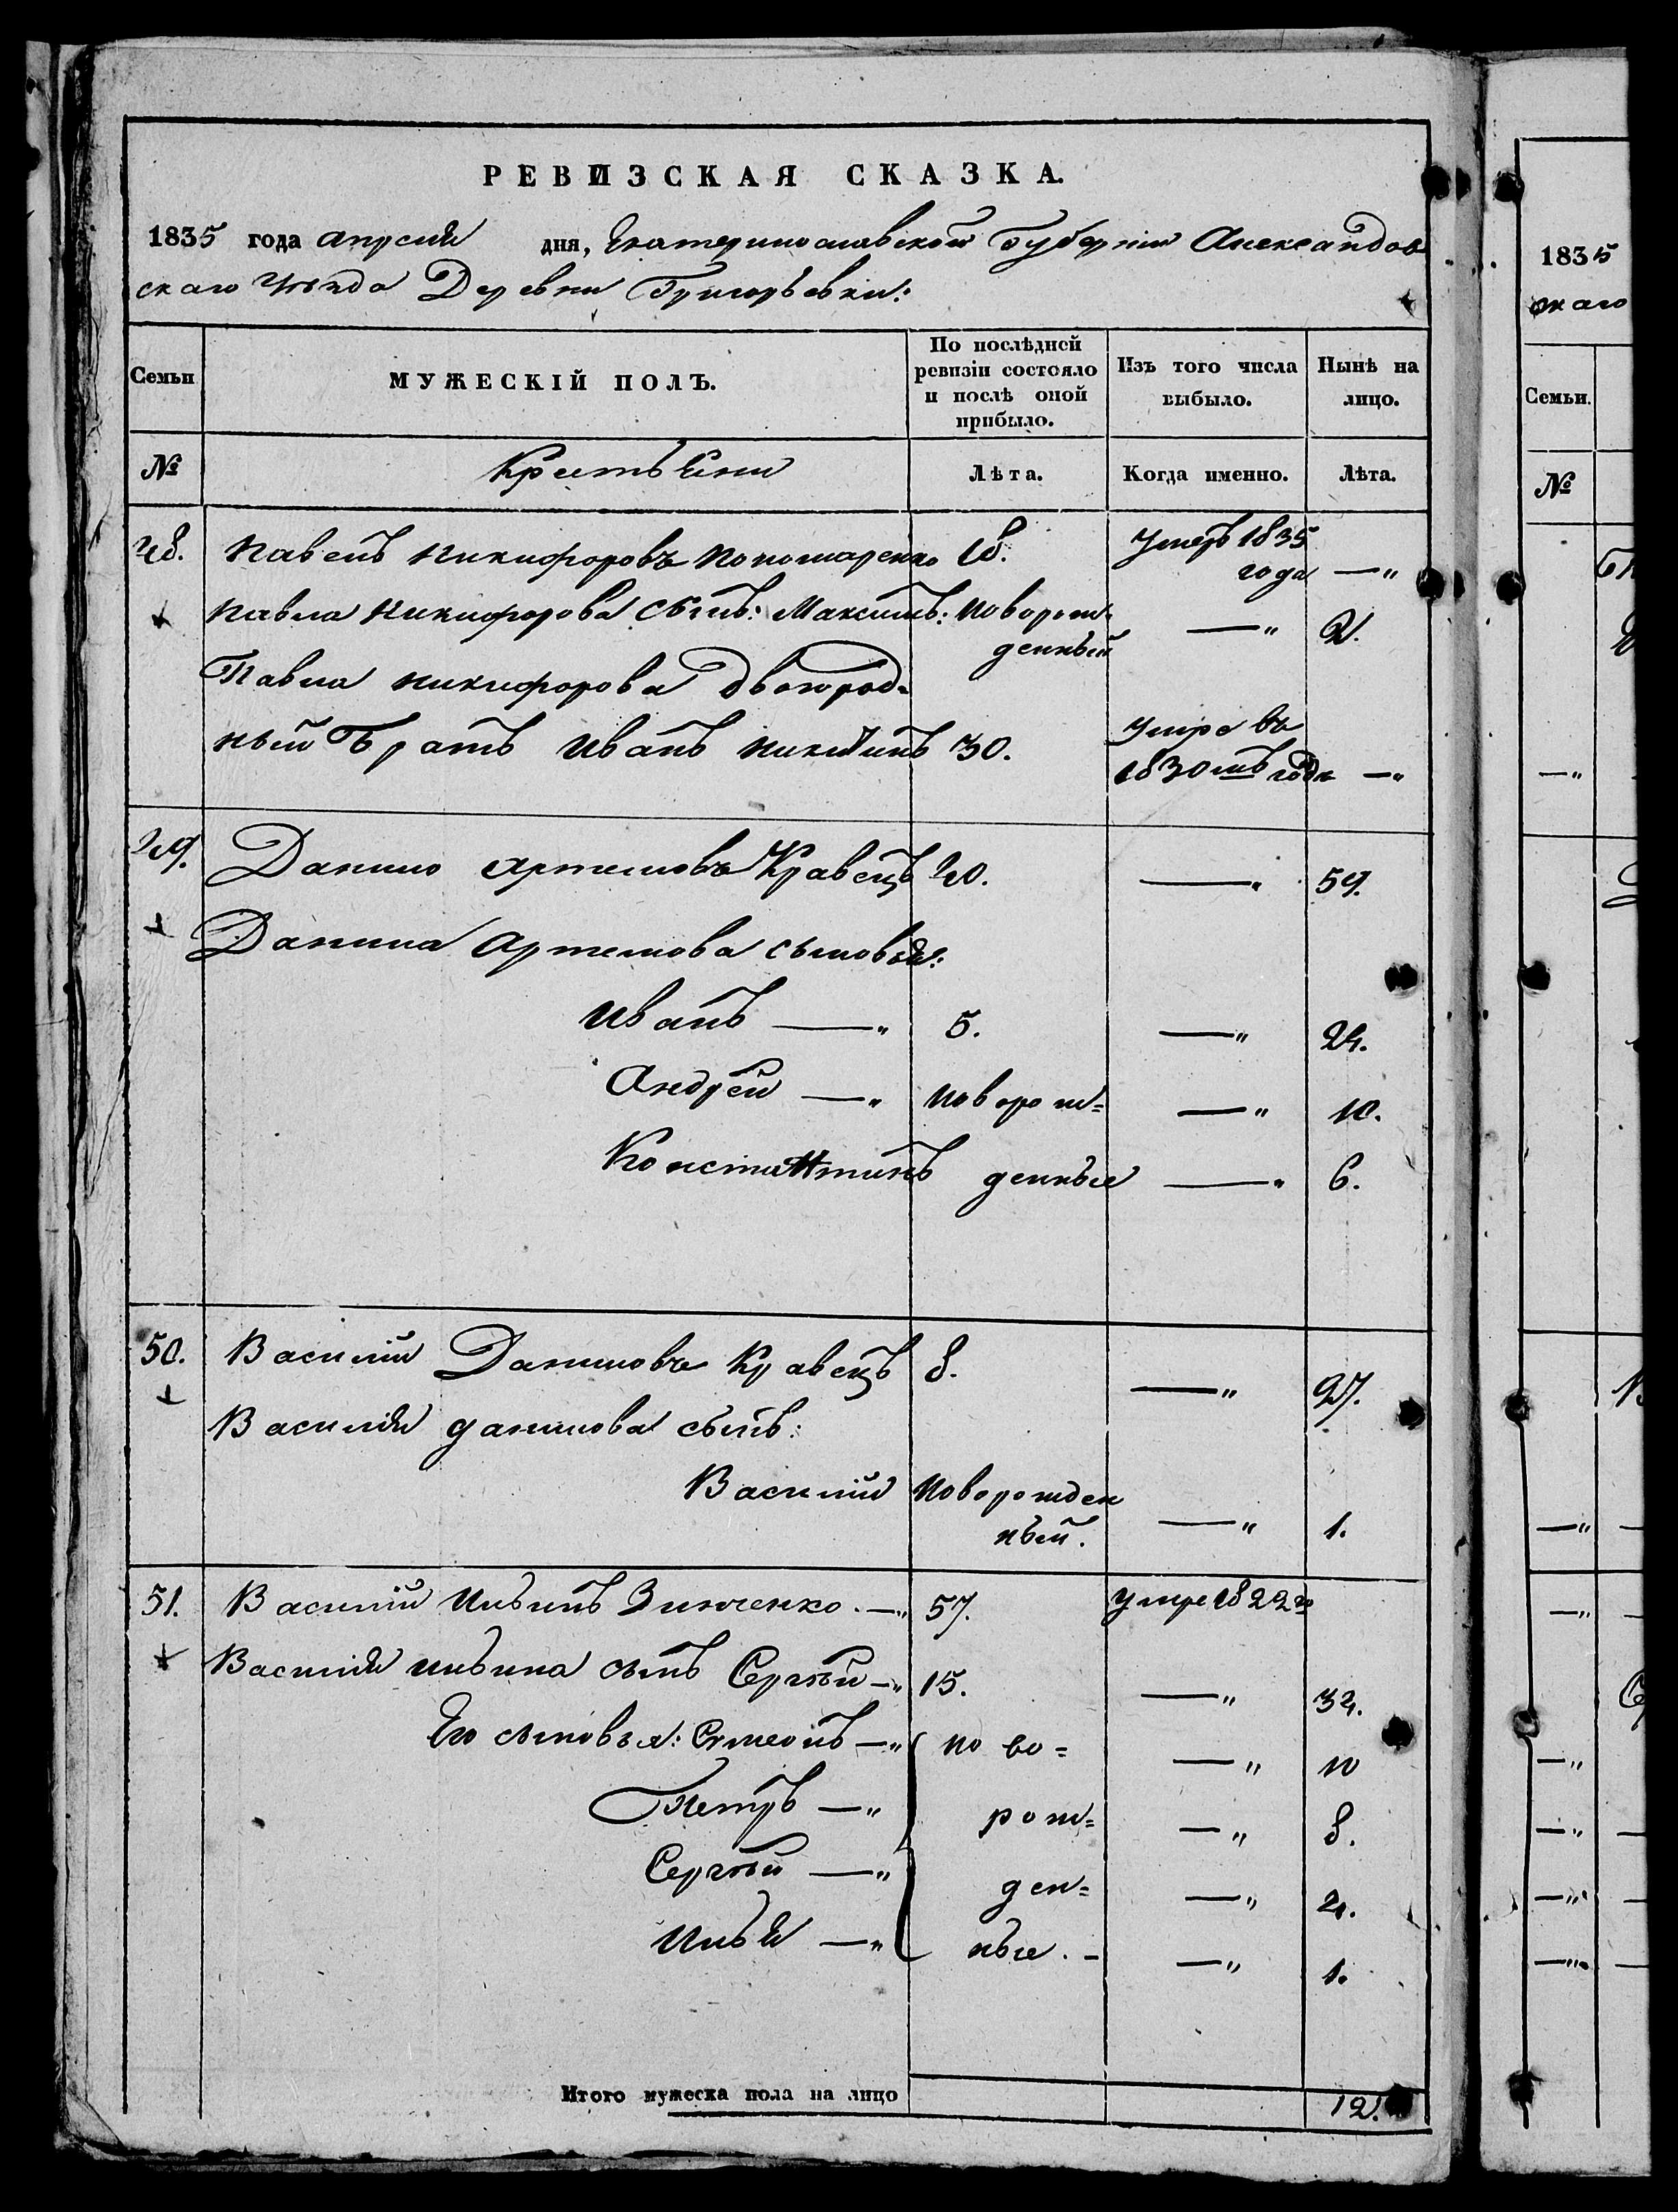 РЕВИЗСКАЯ СКАЗКА.
1835 года апреля дня, Екатеринославской Губерніи Александров
скаго Уѣзда Деревни Григорьевки:
Семьи
МУЖЕСКІЙ ПОЛЪ.
По послѣдней ревизіи состояло и послѣ оной прибыло.
Изъ того числа выбыло.
Нынѣ на лицо.
№
Крестьяни
Лѣта.
Когда именно.
Лѣта.
48. Павелъ Никифоровъ Пономаренко 18. Умеръ 1835 года —„
Павла Никифорова сынъ: Максимъ: Новорож= денный —„ 2.
Павла Никифорова Двоюрод=
ный Братъ Иванъ Никитинъ 30. Умре въ 1830мъ годе —„
49. Данило Артемовъ Кравецъ 40. —„ 59.
Данила Артемова сыновья:
Иванъ —„ 5. —„ 24.
Андрей —„ Новорож= —„ 10.
Константинъ денные —„ 6.
50. Василий Даниловъ Кравецъ 8. —„ 27.
Василия данилова сынъ:
Василий Новорожден ный. —„ 1.
51. Василий Ильинъ Зинченко. —„ 57. Умре 1822го
Василия Ильина сынъ Сергѣй —„ 15. —„ 34.
Его сыновья: Симеонъ —„ но во= —„ 10
Петръ —„ рож= —„ 8.
Сергѣй —„ ден= —„ 4.
Илья —„ ные. – —„ 1.
Итого мужеска пола на лицо 12.
1835
скаго
Семьи.
№